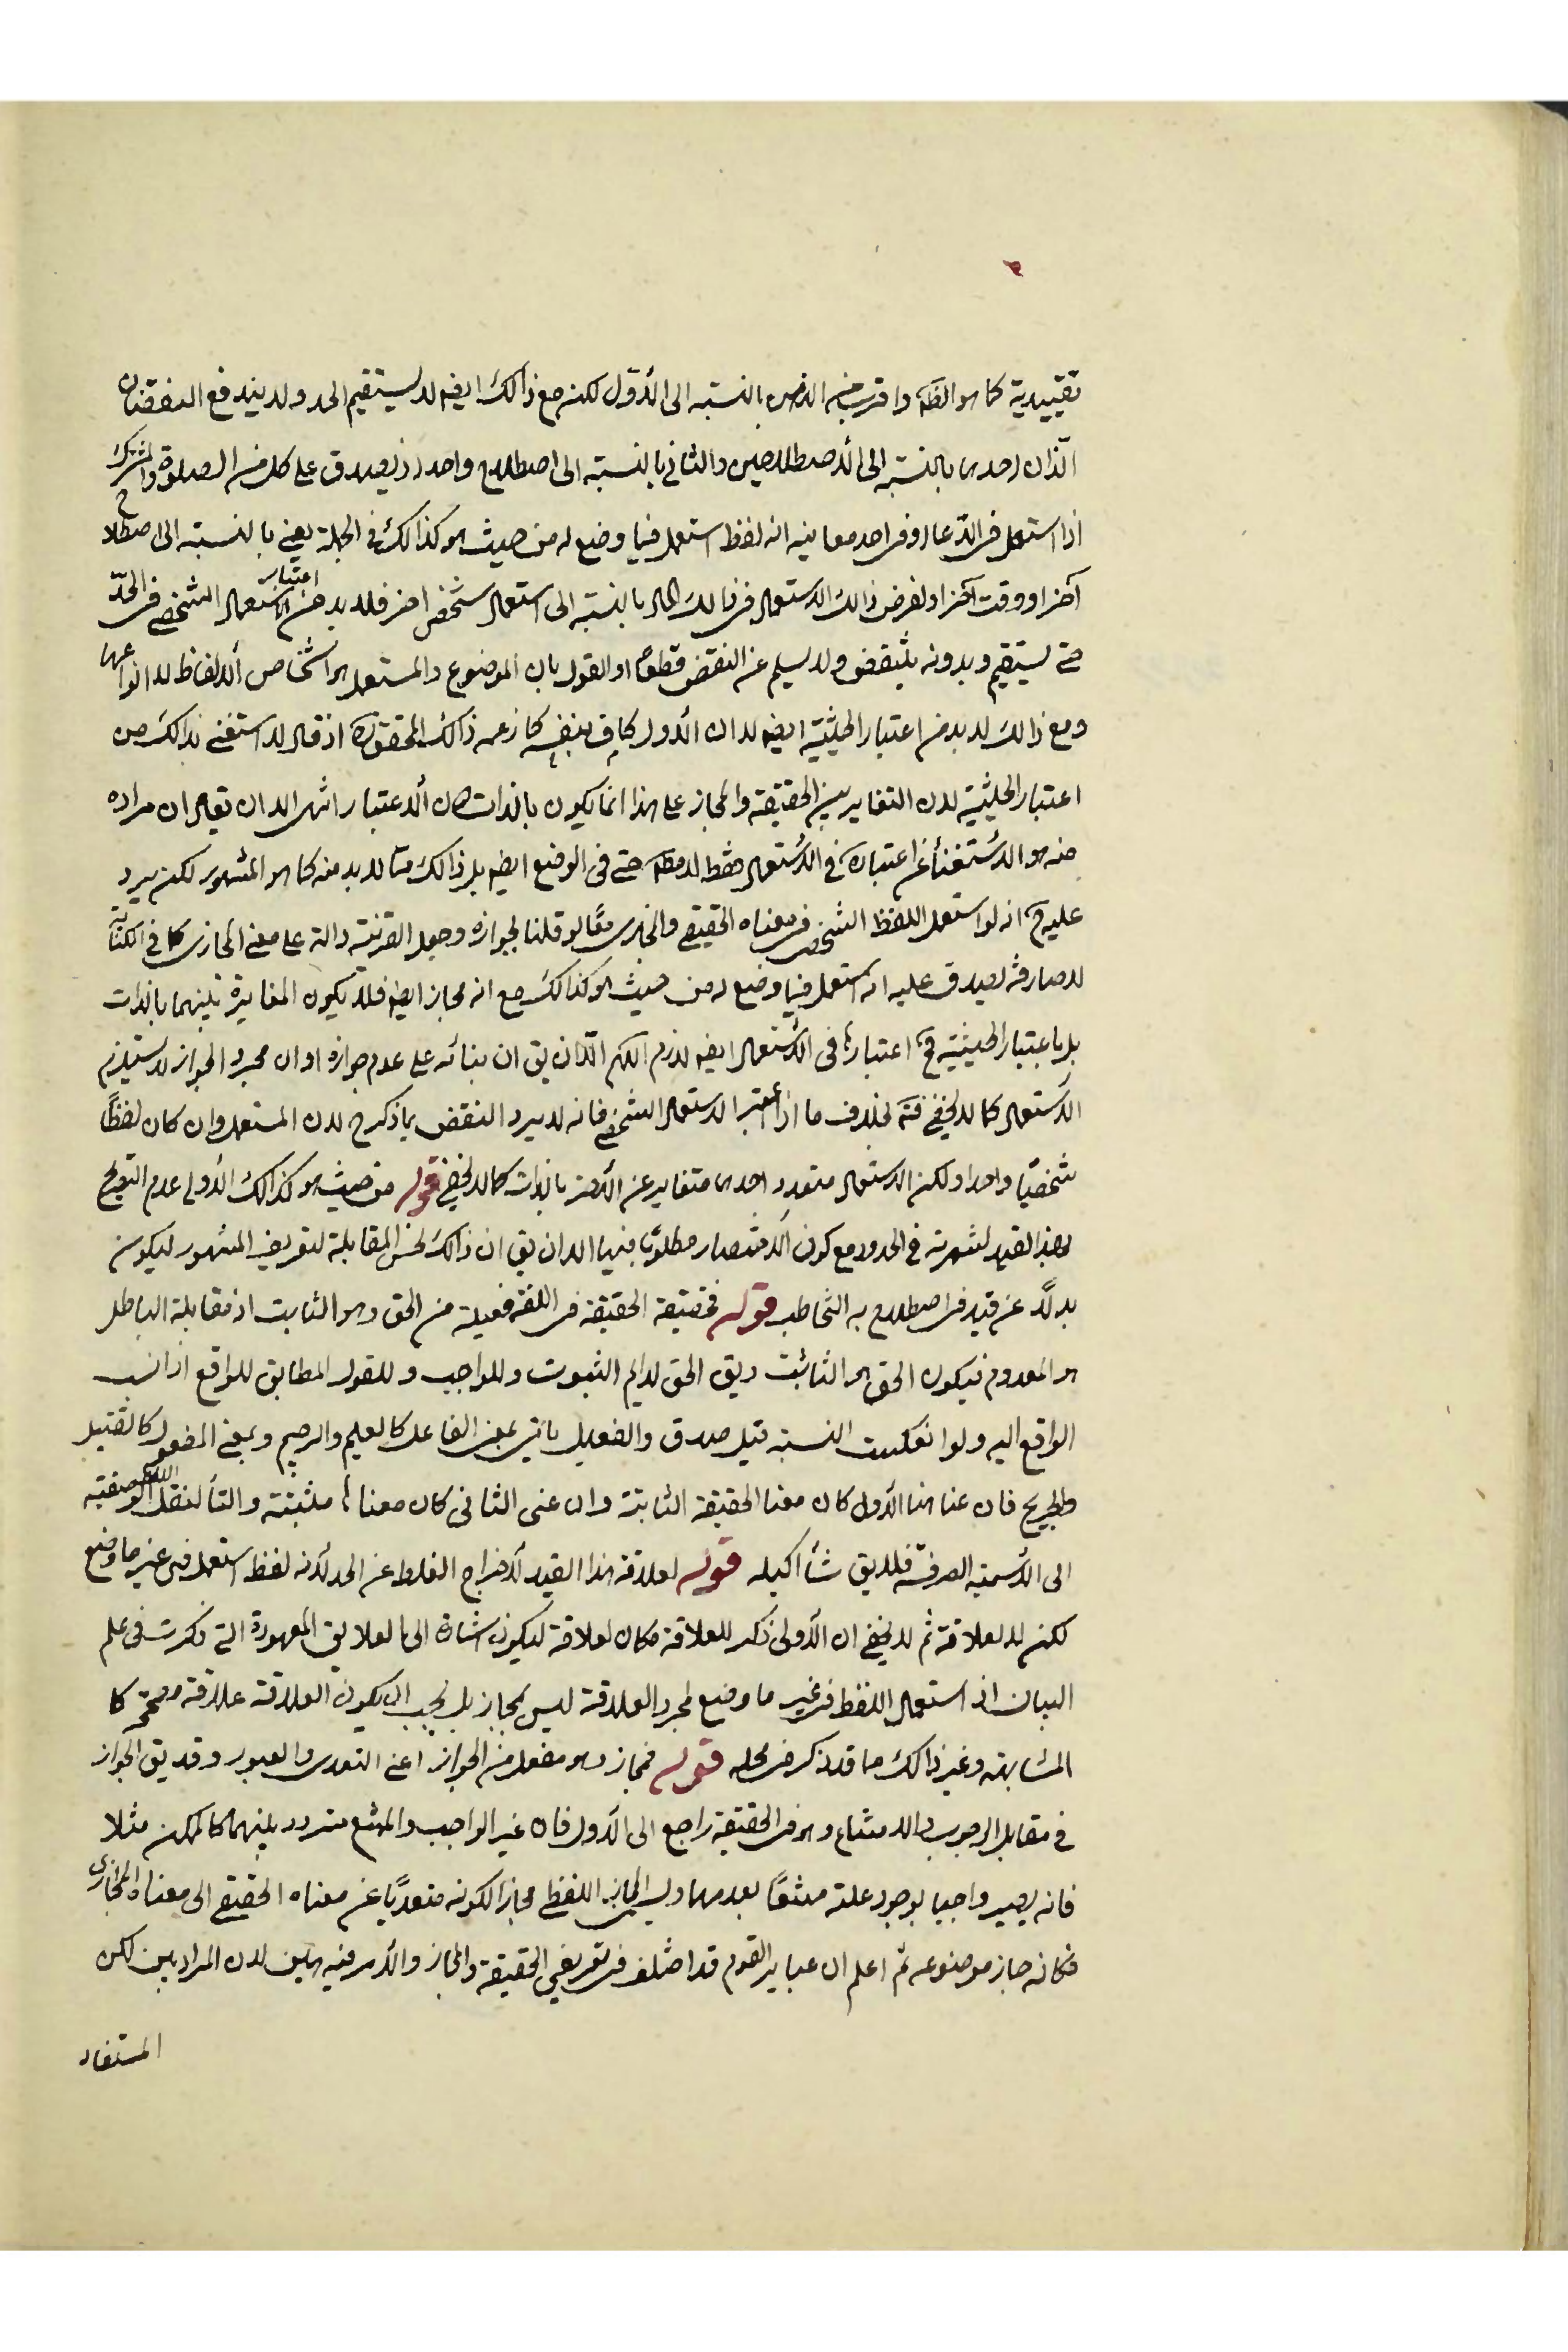 تقييدية كما هو الظ واقترب منه الذهن بالنسبة الى الأوّل لكنه مع ذالك ايضه لا يستقيم الحد ولا يندفع النقضان
اللّذان احدهما بالنسبة الى الأصطلاحين والثاني بالنسبة الى اصطلاح واحد اذ يصدق على كل من الصلوة والمشترك
اذا استعمل في الدّعا او في احد معانيه انه لفظ استعمل فيما وضع له من حيث هو كذالك في الجملة يعني بالنسبة الى اصطلاح
آخر او وقت آخر او لفرض ذالك الاستعمال في ذالك الحال بالنسبة الى استعمال شخص اخر فلا بد من اعتبار الاستعمال الشخصي في الحدّ
حتى يستقيم وبدونه ينتقض ولا يسلم عن النقض قطعا او القول بان الموضوع والمستعمل هو اشخاص الألفاظ لا انواعها
ومع ذالك لا بد من اعتبار الحيثية ايضه لا ان الأول كاف بنفسه كما زعمه ذالك المحقق اذ قال لا استغنى بذالك من
اعتبار الحيثية لان التغاير بين الحقيقة والمجاز على هذا انما يكون بالذات لا بالأعتبار انتهى الا ان يقال ان مراده
منه هو الاستغنأ عن اعتباره في الأستعمال فقط لا مطه حتى فى الوضع ايضه بل ذالك ممّا لا بد منه كما هو المشهور لكن يرد
عليه ح انه لو استعمل اللفظ الشخصي في معناه الحقيقي والمجازى معًا لو قلنا بجوازه وجعل القرنية دالة على معنى المجازى كما في الكناية
لا صارفة لصدق عليه انه استعمل فيما وضع له من حيث هو كذالك مع انه مجاز ايضه فلا يكون المغايرة بينهما بالذات
بل باعتبار الحيثية فح اعتبارها فى الأستعمال ايضه لازم اللهم الّا ان يق ان بنائه على عدم جوازه او ان مجرد الجواز لا يستلزم
الأستعمال كما لا يخفى فت بخلاف ما اذا اعتبر الاستعمال الشخصي فانه لا يرد النقض بما ذكر ح لان المستعمل وان كان لفظًا
شخصيًا واحدا ولكن الاستعمال متعدد احدهما متغاير عن الأخر بالذات كما لا يخفى قوله من حيث هو كذالك الأولى عدم التصريح
بهذا القيد لشهرته في الحدود مع كون الأختصار مطلوبًا فيها الا ان يق ان ذالك لحسن المقابلة لتعريف المشهور ليكون
بدلًا عن قيد في اصطلاح به التخاطب قوله فحقيقة الحقيقة في اللغة فعيلة من الحق وهو الثابت اذ مقابلة الباطل
هو المعدوم فيكون الحق هو الثابت ويق الحق لدايم الثبوت وللواجب وللقول المطابق للواقع اذا نسب
الواقع اليه ولو انعكست النسبة قيل صدق والفعيل يأتي بمعنى الفاعل كالعليم والرحيم وبمعنى المفعول كالقتيل
والجريح فان عنا هنا الأول كان معنا الحقيقة الثابتة وان عنى الثانى كان معناها مثبتة والتأ لنقل اللفظ من الوصفية
الى الأسمية الصرفة فلا يق شأ اكيله قوله لعلاقة هذا القيد لأخراج الغلط عن الحد لأنه لفظ استعمل في غير ما وضع
لكن لا لعلاقة ثم لا يخفى ان الأولى ذكر للعلاقة مكان لعلاقة ليكون اشارة الى العلايق المعهودة التى ذكرت فى علم
البيان اذ استعمال اللفظ في غير ما وضع لمجرد العلاقة ليس بمجاز بل يجب ان يكون العلاقة علاقة مصححة كا
المشابهة وغير ذالك مما قد ذكر في محله قوله فمجاز وهو مفعل من الجواز اعنى التعدى والعبور وقد يق الجواز
في مقابل الوجوب والامتناع وهو في الحقيقة راجع الى الأول فان غير الواجب والممتنع متردد بينهما كالممكن مثلا
فانه يصير واجبا بوجود علته ممتنعًا بعدمها ويسمى المجاز اللفظي مجازا لكونه متعديًا عن معناه الحقيقى الى معناه المجازى
فكانه جاز موضوعه ثم اعلم ان عباير القوم قد اختلف في تعريفي الحقيقة والمجاز والأمر فيه هين لان المراد بين لكن
المستفاد